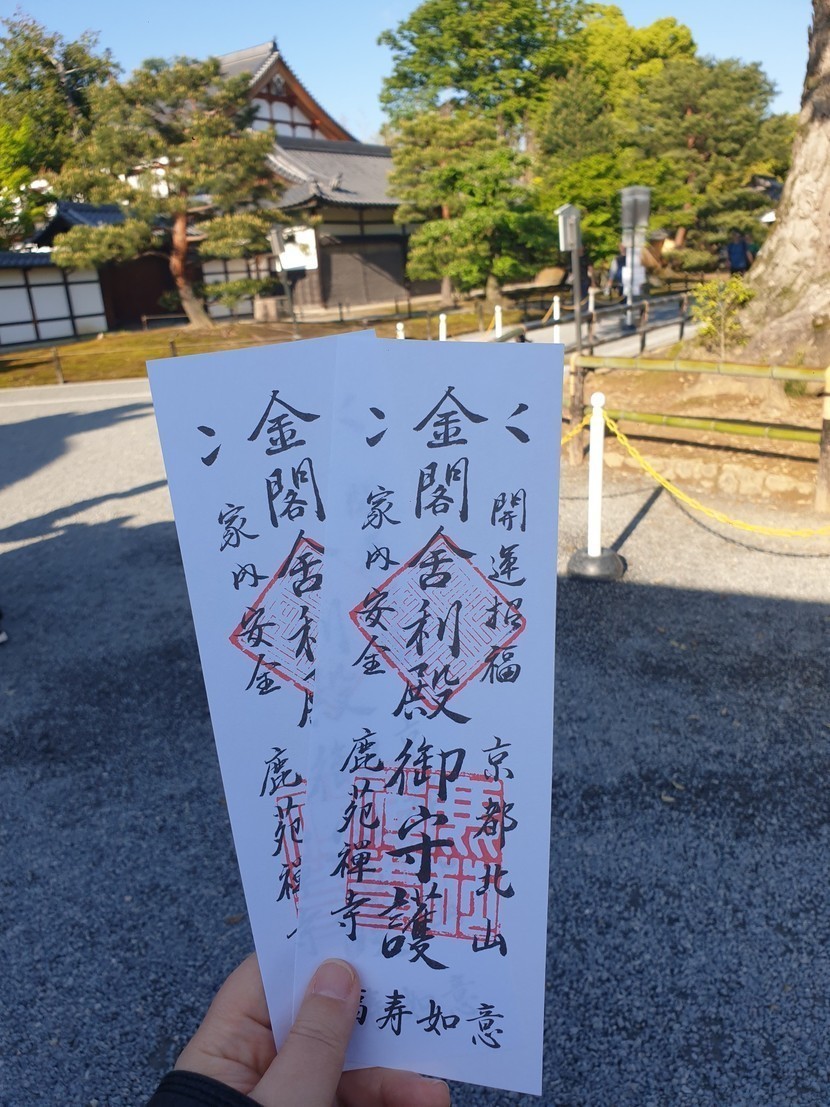 開運招福
京都北山
金閣舎利殿御守護
家内安全
鹿苑禪寺
福寿如意
金閣舎利
家内安全
鹿苑禪